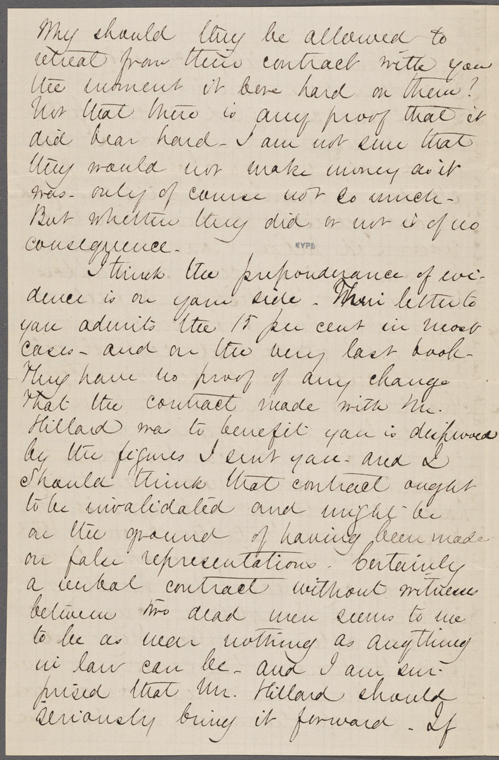 Why should they be allowed to
retreat from their contract with you
the moment it bore hard on them?
Not that there is any proof that it
did bear hard - I am not sure that
they would not make money as it
was - only of course not so much -
But whether they did or not is of no
consequence -
NYPL
I think the preponderance of evi-
dence is on your side - Their letter to
you admits the 15 per cent in most
cases - and on the very last book -
They have no proof of any change
That the contract made with Mr.
Hillard was to benefit you is disproved
by the figures I sent you - and I
should think that contract ought
to be invalidated and might be
on the ground of having been made
on false representations. Certainly
a verbal contract without witnesses
between two dead men seems to me
to be as near nothing as anything
in law can be - and I am sur-
prised that Mr. Hillard should
seriously bring it forward - If